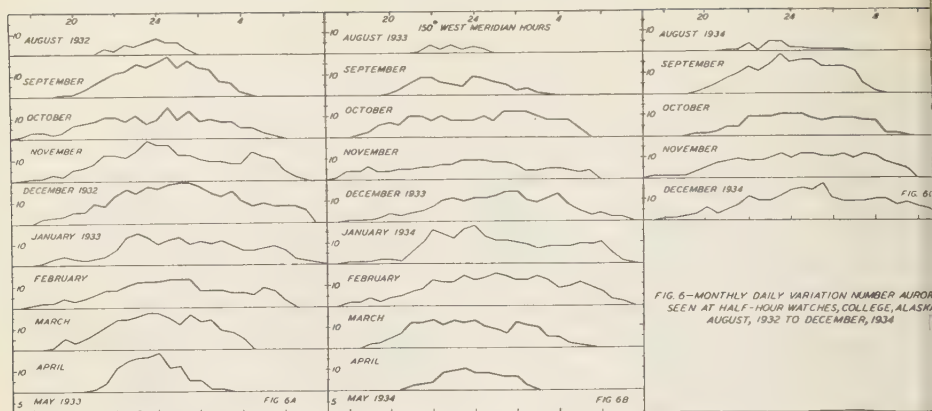 20 24 4
10 AUGUST 1932
10 SEPTEMBER
10 OCTOBER
10 NOVEMBER
10 DECEMBER 1932
10 JANUARY 1933
10 FEBRUARY
10 MARCH
10 APRIL
5 MAY 1933 FIG 6A
20 24 4 8
150° WEST MERIDIAN HOURS
10 AUGUST 1933
10 SEPTEMBER
10 OCTOBER
10 NOVEMBER
10 DECEMBER 1933
10 JANUARY 1934
10 FEBRUARY
10 MARCH
10 APRIL
5 MAY 1934 FIG 6B
20 24 4 8
10 AUGUST 1934
10 SEPTEMBER
10 OCTOBER
10 NOVEMBER
10 DECEMBER 1934 FIG 6C
FIG. 6—MONTHLY DAILY VARIATION NUMBER AUROR
SEEN AT HALF-HOUR WATCHES, COLLEGE, ALASKA
AUGUST, 1932 TO DECEMBER, 1934